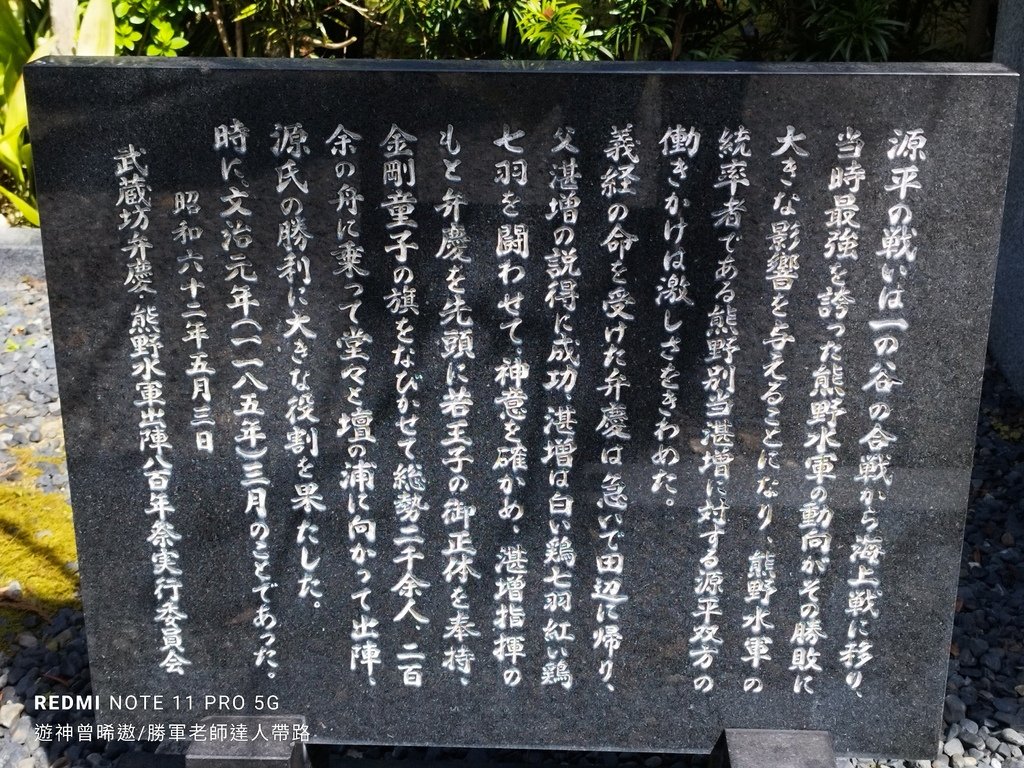 源平の戦いは一の谷の合戦から海上戦に移り、
当時最強を誇った熊野水軍の動向がその勝敗に
大きな影響を与えることになり、熊野水軍の
統率者である熊野別当湛増に対する源平双方の
働きかけは激しさをきわめた。
義経の命を受けた弁慶は急いで田辺に帰り、
父湛増の説得に成功、湛増は白い鶏七羽紅い鶏
七羽を闘わせて、神意を確かめ、湛増指揮の
もと弁慶を先頭に若王子の御正体を奉持、
金剛童子の旗をなびかせて総勢二千余人、二百
余の舟に乗って堂々と壇の浦に向かって出陣、
源氏の勝利に大きな役割を果たした。
時に、文治元年(一一八五年)三月のことであった。
昭和六十二年五月三日
武蔵坊弁慶・熊野水軍出陣八百年祭実行委員会
REDMI NOTE 11 PRO 5G
遊神曾晞遨/勝軍老師達人帶路